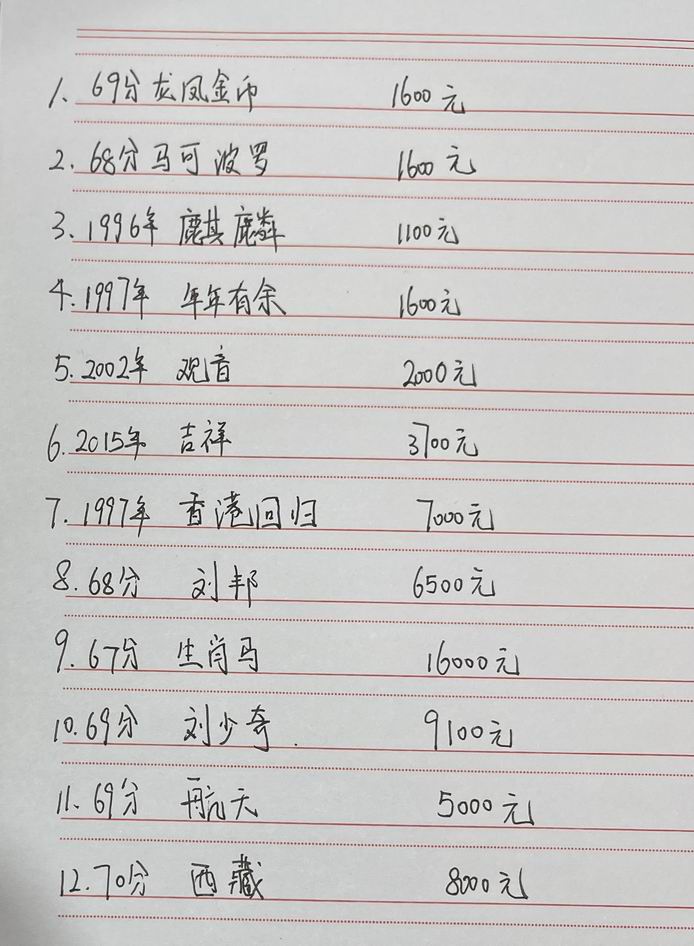 1. 69分龙凤金币 1600元
2. 68分马可波罗 1600元
3. 1996年 麒麟 1100元
4. 1997年 年年有余 1600元
5. 2002年 观音 2000元
6. 2015年 吉祥 3700元
7. 1997年 香港回归 7000元
8. 68分 刘邦 6500元
9. 67分 生肖马 16000元
10. 69分 刘少奇 9100元
11. 69分 航天 5000元
12. 70分 西藏 8000元